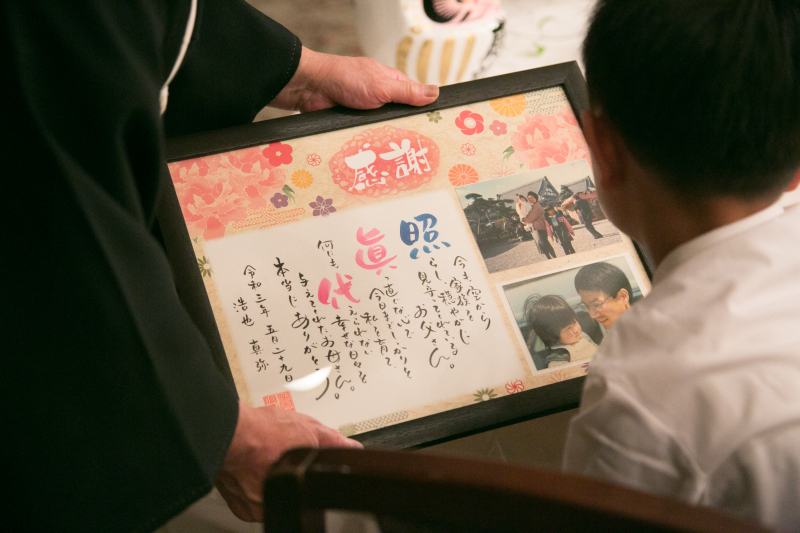 感謝
今も、空から
家族を
照らし、穏やかに
見守ってくれている
お父さん。
眞っ直ぐな心で
今日までしっかりと
私を育て、
何にも、
代えられない
幸せな日々を
与えてくれたお母さん。
本当に ありがとう
令和三年 五月二十九日
浩也 真弥